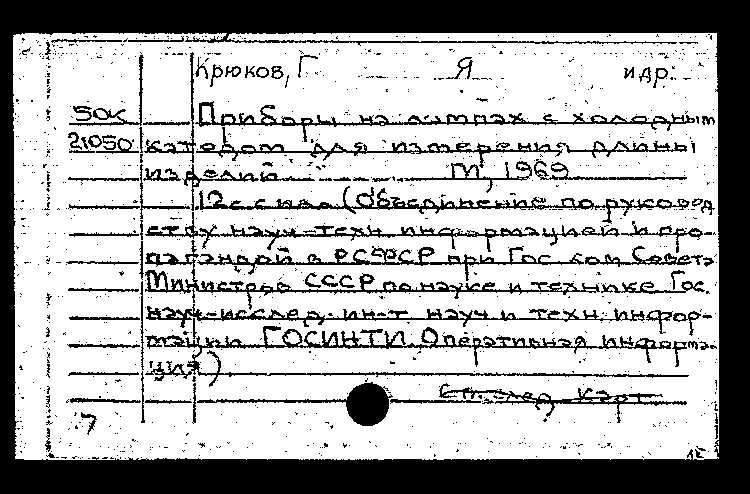 Крюков, Г. Я. и др.
50к Приборы на лампах с холодным
21050 катодом для измерения длины
изделий М, 1969
12с с илл (Объединение по руковод
ству науч-техн информацией и про-
пагандой в РСФСР при Гос ком Совета
Министров СССР по науке и технике Гос.
науч-исслед. ин-т науч и техн. инфор-
мации ГОСИНТИ. Оперативная информа-
ция)
См. след карт
7